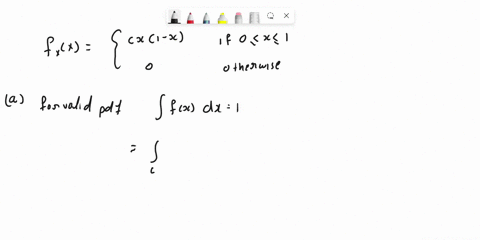 fx(x) = { cx(1-x) if 0 ≤ x ≤ 1
0 otherwise
(a) for valid pdf ∫ f(x) dx = 1
= ∫